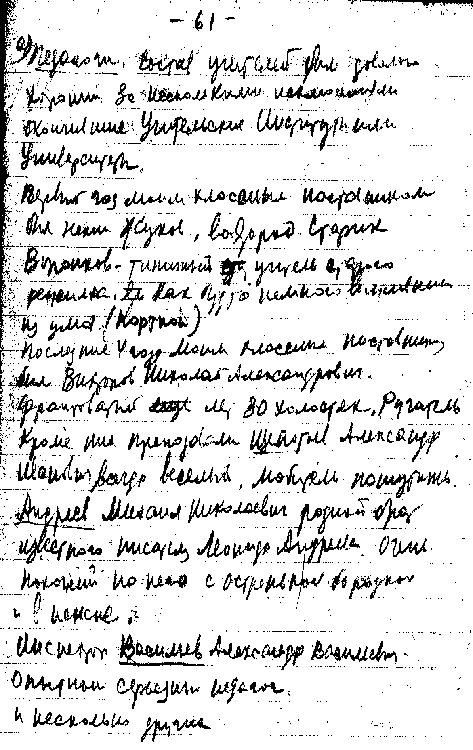 - 61 -
а) Педагоги. Состав учителей был довольно
хороший за несколькими исключениями
окончившие Учительские Институты или
Университеты.
Первый год моим классным наставником
был некий Жуков, бодрый старик
Воронков - типичный учитель старого
режима. как будто немного
из ума (Портной)
последние 4 года моим классным наставником
был Викторов Николай Александрович.
франтоватый лет 30 холостяк,
Кроме них преподавали Александр
Иванович всегда веселый, любитель пошутить.
Андреев Михаил Николаевич родной брат
известного писателя Леонида Андреева очень
похожий на него с остренькой бородкой
и в пенсне.
Инспектор Васильев Александр Васильевич.
Опытный серьезный педагог.
и несколько других